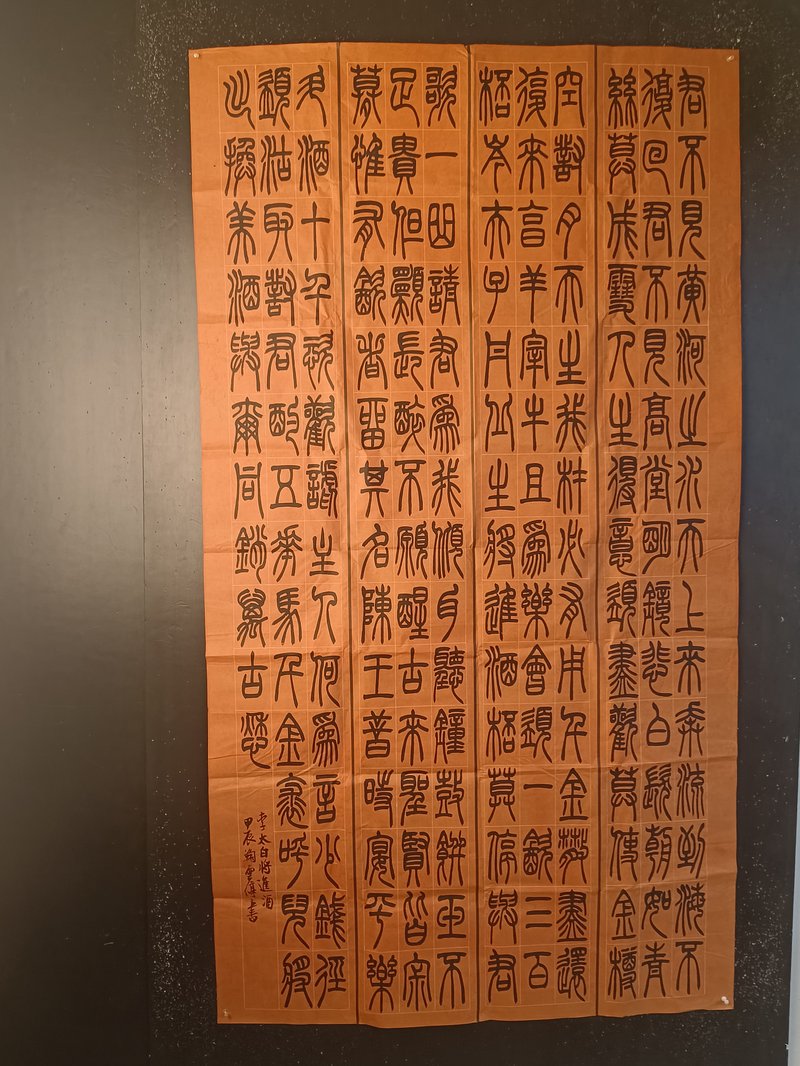 君不見黃河之水天上來奔流到海不
復回君不見高堂明鏡悲白髮朝如青
絲莫成雪人生得意須盡歡莫使金樽
空對月天生我材必有用千金散盡還
復來烹羊宰牛且為樂會須一飲三百
杯岑夫子丹丘生將進酒杯莫停與君
歌一曲請君為我傾耳聽鐘鼓饌玉不
足貴但願長醉不願醒古來聖賢皆寂
寞惟有飲者留其名陳王昔時宴平樂
斗酒十千恣歡謔主人何為言少錢徑
須沽取對君酌五花馬千金裘呼兒將
出換美酒與爾同銷萬古愁
李太白將進酒
甲辰 書